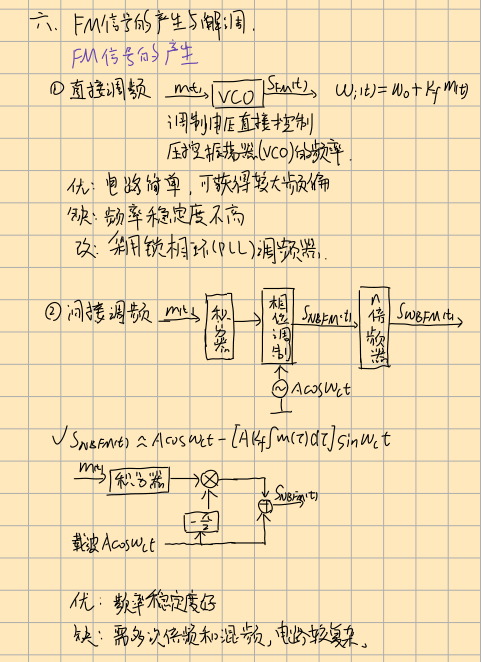 六、FM信号的产生与解调.
FM信号的产生
① 直接调频 m(t) VCO S_FM(t) ω_i(t)=ω_0+K_f m(t)
调制电压直接控制
压控振荡器(VCO)的频率.
优: 电路简单, 可获得较大频偏
缺: 频率稳定度不高
改: 采用锁相环(PLL)调频器.
② 间接调频 m(t) 积分器 相位调制 S_NBFM(t) n倍频器 S_WBFM(t)
Acosω_ct
✓ S_NBFM(t) ≈ Acosω_ct - [AK_f∫m(τ)dτ]sinω_ct
m(t) 积分器 S_NBFM(t)
-π/2
载波Acosω_ct
优: 频率稳定度好
缺: 需多次倍频和混频, 电路较复杂.